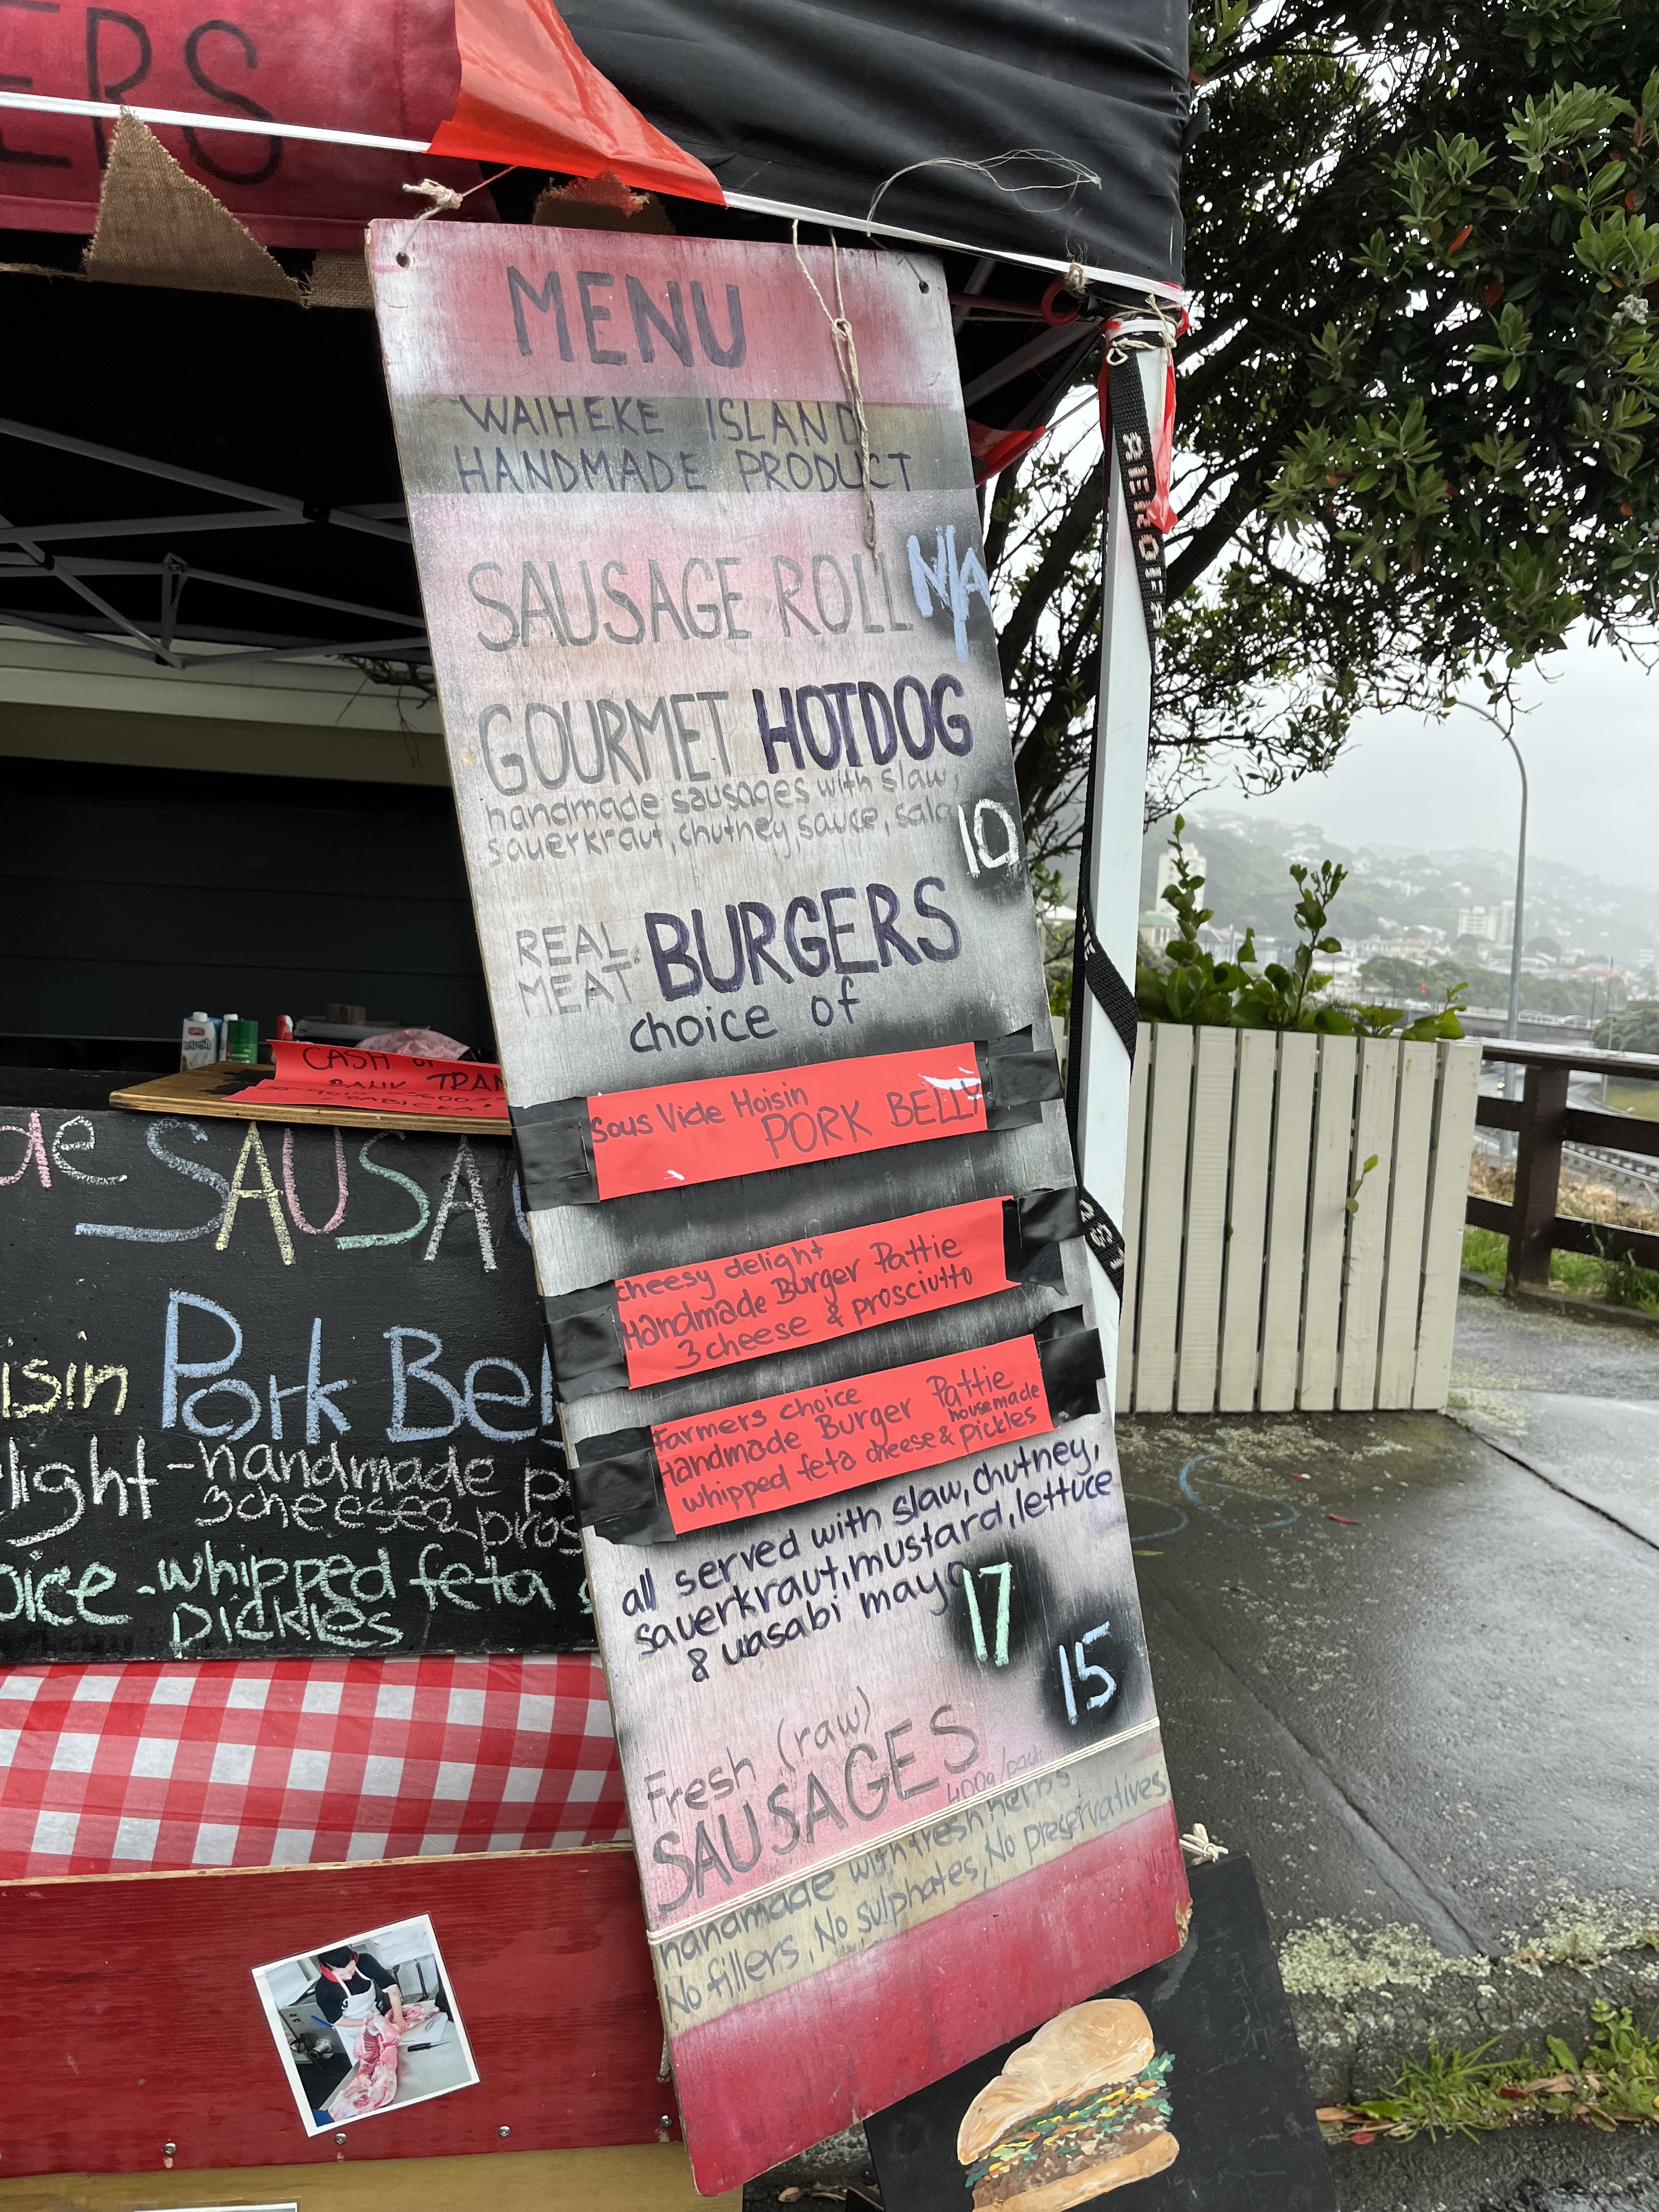 ERS
MENU
WAIHEKE ISLAND
HANDMADE PRODUCT
SAUSAGE ROLL N/A
GOURMET HOTDOG
handmade sausages with slaw,
sauerkraut, chutney, sauce,
10
REAL MEAT BURGERS
choice of
Sous Vide Hoisin
PORK BELLY
cheesy delight
Handmade Burger Pattie
3 cheese & prosciutto
farmers choice
Handmade Burger Pattie
housemade
whipped feta cheese & pickles
all served with slaw, chutney,
sauerkraut, mustard, lettuce
& wasabi mayo
17
15
Fresh (raw)
SAUSAGES 400g/pack
handmade with fresh herbs
No fillers, No sulphates, No preservatives
CASH or
BANK TRAN
de SAUSA
isin Pork Bel
light - handmade p
3 cheese & pros
oice - whipped feta
Pickles